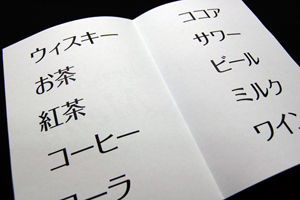 ウィスキー
お茶
紅茶
コーヒー
コーラ
ココア
サワー
ビール
ミルク
ワイン